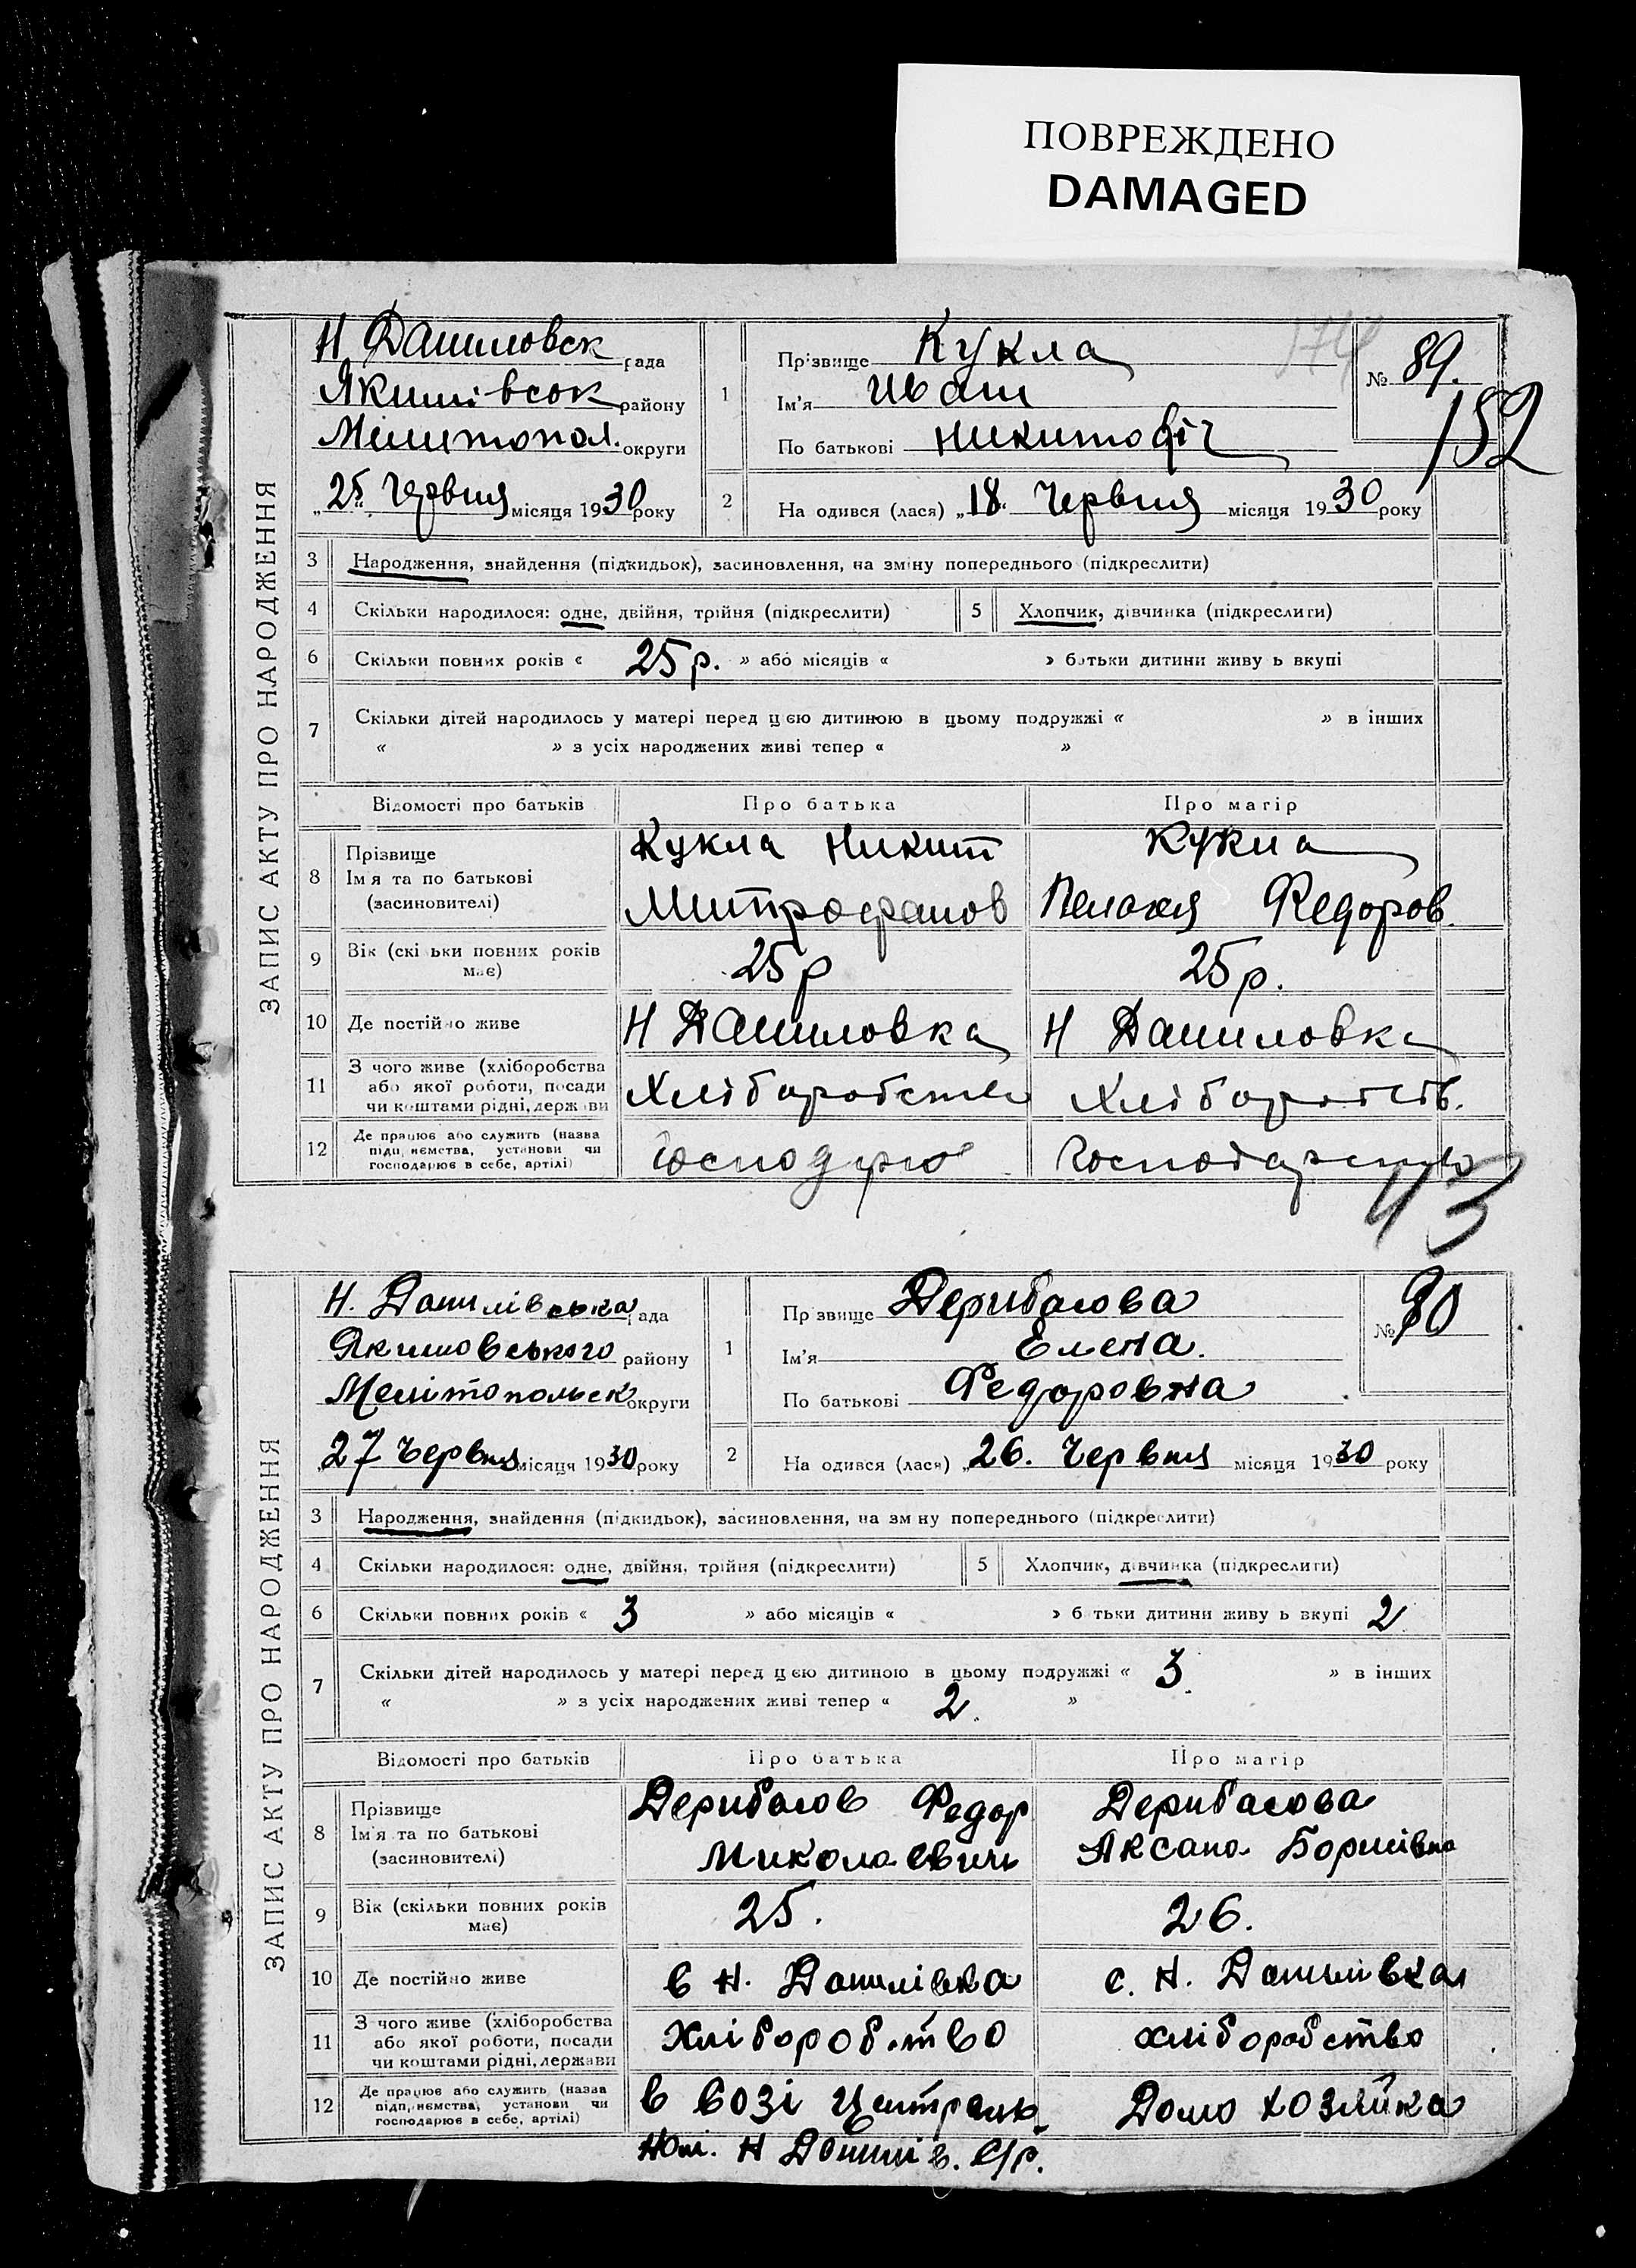 ПОВРЕЖДЕНО
DAMAGED
ЗАПИС АКТУ ПРО НАРОДЖЕННЯ
Н Даниловск рада
Якимівсок району
Мелитопол. округи
„25“ Червня місяця 1930 року
1 Прізвище Кукла
Ім'я Иван
По батькові Никитофіч
№ 89.
152
2 На одився (лася) „18“ Червня місяця 1930 року
3 Народження, знайдення (підкидьок), засиновлення, на зміну попереднього (підкреслити)
4 Скільки народилося: одне, двійня, трійня (підкреслити) 5 Хлопчик, дівчинка (підкреслити)
6 Скільки повних років « 25 р. » або місяців « » батьки дитини живу ь вкупі
7 Скільки дітей народилось у матері перед цією дитиною в цьому подружжі « » в інших
« » з усіх народжених живі тепер « »
Відомості про батьків Про батька Про матір
8 Прізвище
Ім'я та по батькові
(засиновителі)
Кукла Никит
Митрофанов
Кукла
Пелагея Федоров.
9 Вік (скі ьки повних років
має)
25 р
25 р.
10 Де постійно живе Н Даниловка Н Даниловка
11 З чого живе (хліборобства
або якої роботи, посади
чи коштами рідні, держави
Хліборобство
Хлібороств.
12 Де працює або служить (назва
підприємства, установи чи
господарює в себе, артілі)
Господарю
Господарство
43
ЗАПИС АКТУ ПРО НАРОДЖЕННЯ
Н. Данилівська рада
Якимовського району
Мелітопольск округи
„27 Червня місяця 1930 року
1 Пр звище Дерибасова
Ім'я Елена.
По батькові Федоровна
№ 90
2 На одився (лася) „26. Червня місяця 1930 року
3 Народження, знайдення (підкидьок), засиновлення, на зм ну попереднього (підкреслити)
4 Скільки народилося: одне, двійня, трійня (підкреслити) 5 Хлопчик, дівчинка (підкреслити)
6 Скільки повних років « 3 » або місяців « » б тьки дитини живу ь вкупі 2
7 Скільки дітей народилось у матері перед цією дитиною в цьому подружжі « 3. » в інших
« » з усіх народжених живі тепер « 2. »
Відомості про батьків Про батька Про матір
8 Прізвище
Ім'я та по батькові
(засиновителі)
Дерибасов Федор
Миколаевич
Дерибасова
Аксана Борисівна
9 Вік (скільки повних років
має)
25.
26.
10 Де постійно живе в Н. Данилівка с. Н. Данилівка
11 З чого живе (хліборобства
або якої роботи, посади
чи коштами рідні, держави
Хліборобство
хліборобство
12 Де працює або служить (назва
підприємства, установи чи
господарює в себе, артілі)
в возі Централь
Домо хозяйка
Н Данилів. С/р.